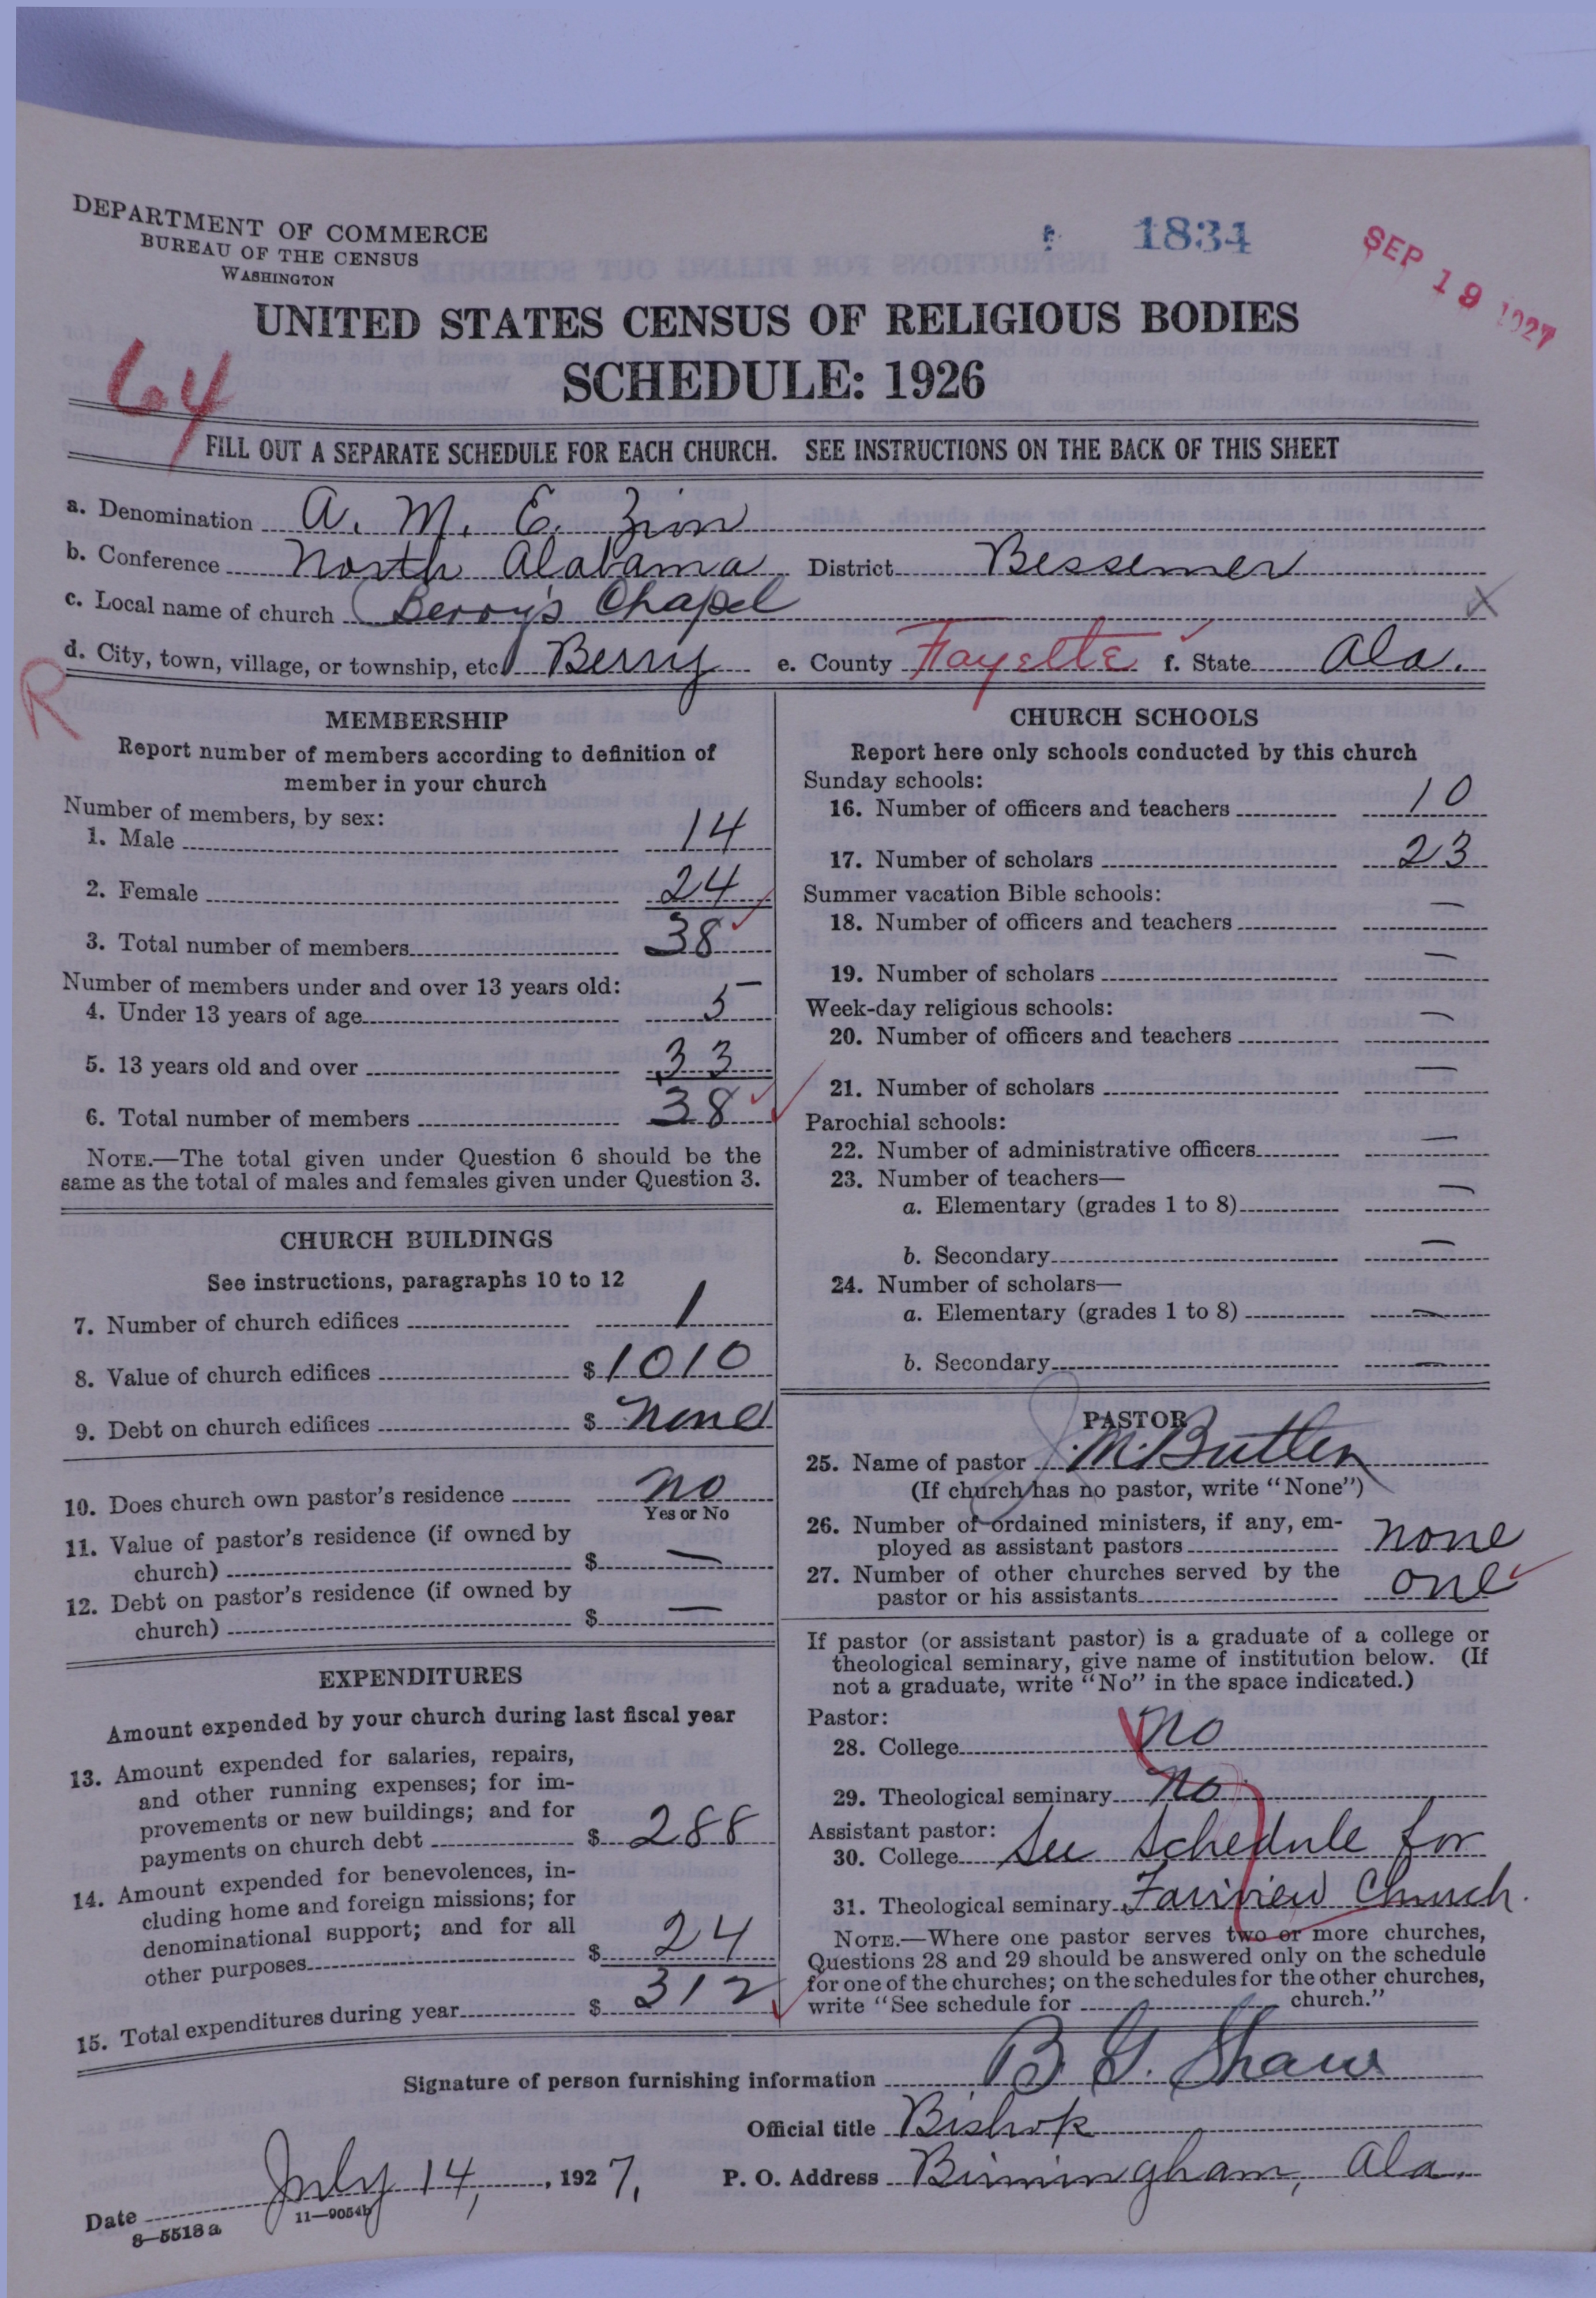 DEPARTMENT OF COMMERCE
BUREAU OF THE CENSUS
WASHINGTON
1834
SEP 19 1927
UNITED STATES CENSUS OF RELIGIOUS BODIES
SCHEDULE: 1926
64
FILL OUT A SEPARATE SCHEDULE FOR EACH CHURCH. SEE INSTRUCTIONS ON THE BACK OF THIS SHEET
a. Denomination A. M. E. Zion
b. Conference North Alabama District Bessemer
c. Local name of church Berry's Chapel X
d. City, town, village, or township, etc. Berry e. County Fayette f. State Ala.
R
MEMBERSHIP
Report number of members according to definition of
member in your church
Number of members, by sex:
1. Male 14
2. Female 24
3. Total number of members 38
Number of members under and over 13 years old:
4. Under 13 years of age 5
5. 13 years old and over 33
6. Total number of members 38
NOTE.—The total given under Question 6 should be the
same as the total of males and females given under Question 3.
CHURCH BUILDINGS
See instructions, paragraphs 10 to 12
7. Number of church edifices 1
8. Value of church edifices $ 1010
9. Debt on church edifices $ none
10. Does church own pastor's residence no
Yes or No
11. Value of pastor's residence (if owned by
church) $ —
12. Debt on pastor's residence (if owned by
church) $ —
EXPENDITURES
Amount expended by your church during last fiscal year
13. Amount expended for salaries, repairs,
and other running expenses; for im-
provements or new buildings; and for
payments on church debt $ 288
14. Amount expended for benevolences, in-
cluding home and foreign missions; for
denominational support; and for all
other purposes $ 24
15. Total expenditures during year $ 312
CHURCH SCHOOLS
Report here only schools conducted by this church
Sunday schools:
16. Number of officers and teachers 10
17. Number of scholars 23
Summer vacation Bible schools:
18. Number of officers and teachers —
19. Number of scholars —
Week-day religious schools:
20. Number of officers and teachers —
21. Number of scholars —
Parochial schools:
22. Number of administrative officers —
23. Number of teachers—
a. Elementary (grades 1 to 8) —
b. Secondary —
24. Number of scholars—
a. Elementary (grades 1 to 8) —
b. Secondary —
PASTOR
25. Name of pastor J. M. Butler
(If church has no pastor, write "None")
26. Number of ordained ministers, if any, em-
ployed as assistant pastors none
27. Number of other churches served by the
pastor or his assistants one
If pastor (or assistant pastor) is a graduate of a college or
theological seminary, give name of institution below. (If
not a graduate, write "No" in the space indicated.)
Pastor:
28. College no
29. Theological seminary no
Assistant pastor:
30. College See schedule for
31. Theological seminary Fairview Church.
NOTE.—Where one pastor serves two or more churches,
Questions 28 and 29 should be answered only on the schedule
for one of the churches; on the schedules for the other churches,
write "See schedule for church."
Signature of person furnishing information B. G. Shaw
Official title Bishop
Date July 14, 1927. P. O. Address Birmingham, Ala.
8—5518a 11—9054b